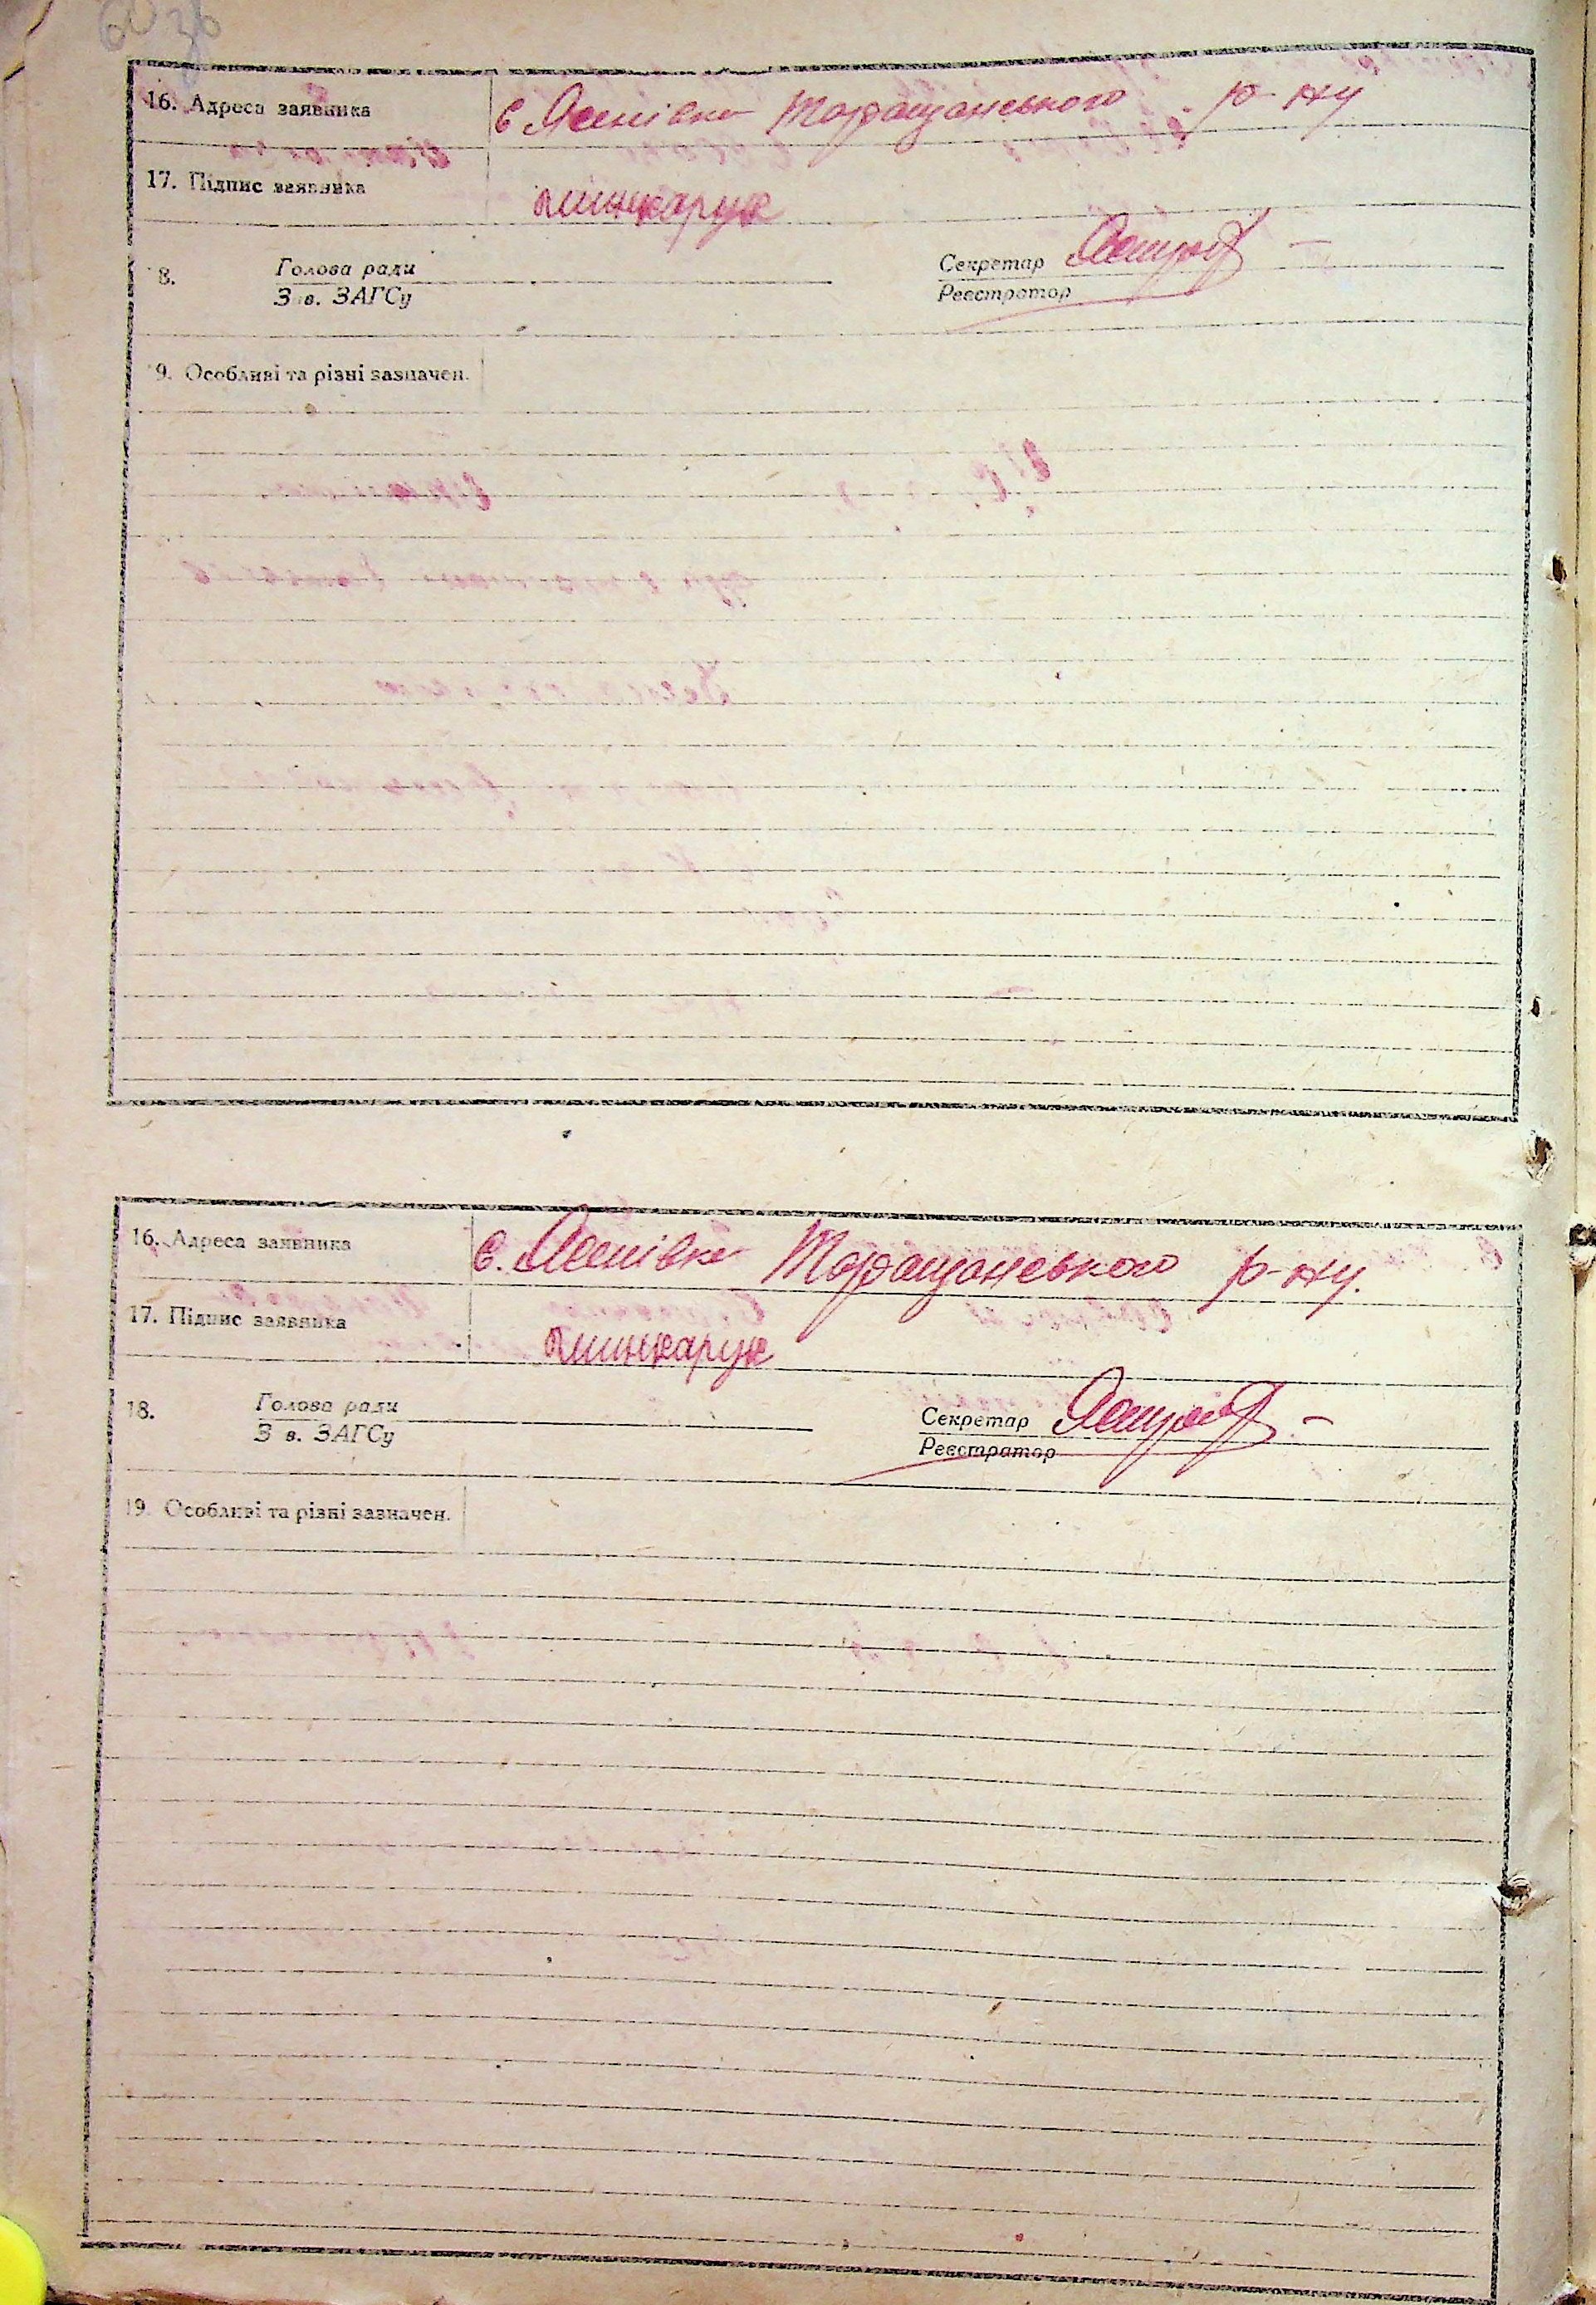 16. Адреса заявника с. Лснівка Таращанського р-ну
17. Підпис заявника шинкарук
18. Голова ради Секретар
Зав. ЗАГСу Реєстратор
19. Особливі та різні зазначен.
16. Адреса заявника с. Лснівка Таращанського р-ну.
17. Підпис заявника шинкарук
18. Голова ради Секретар
Зав. ЗАГСу Реєстратор
19. Особливі та різні зазначен.